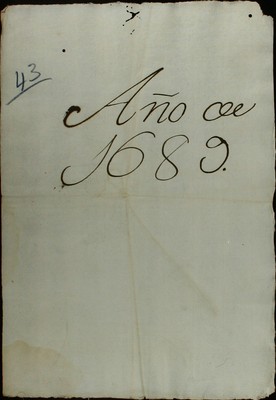 43
Año de
1689.